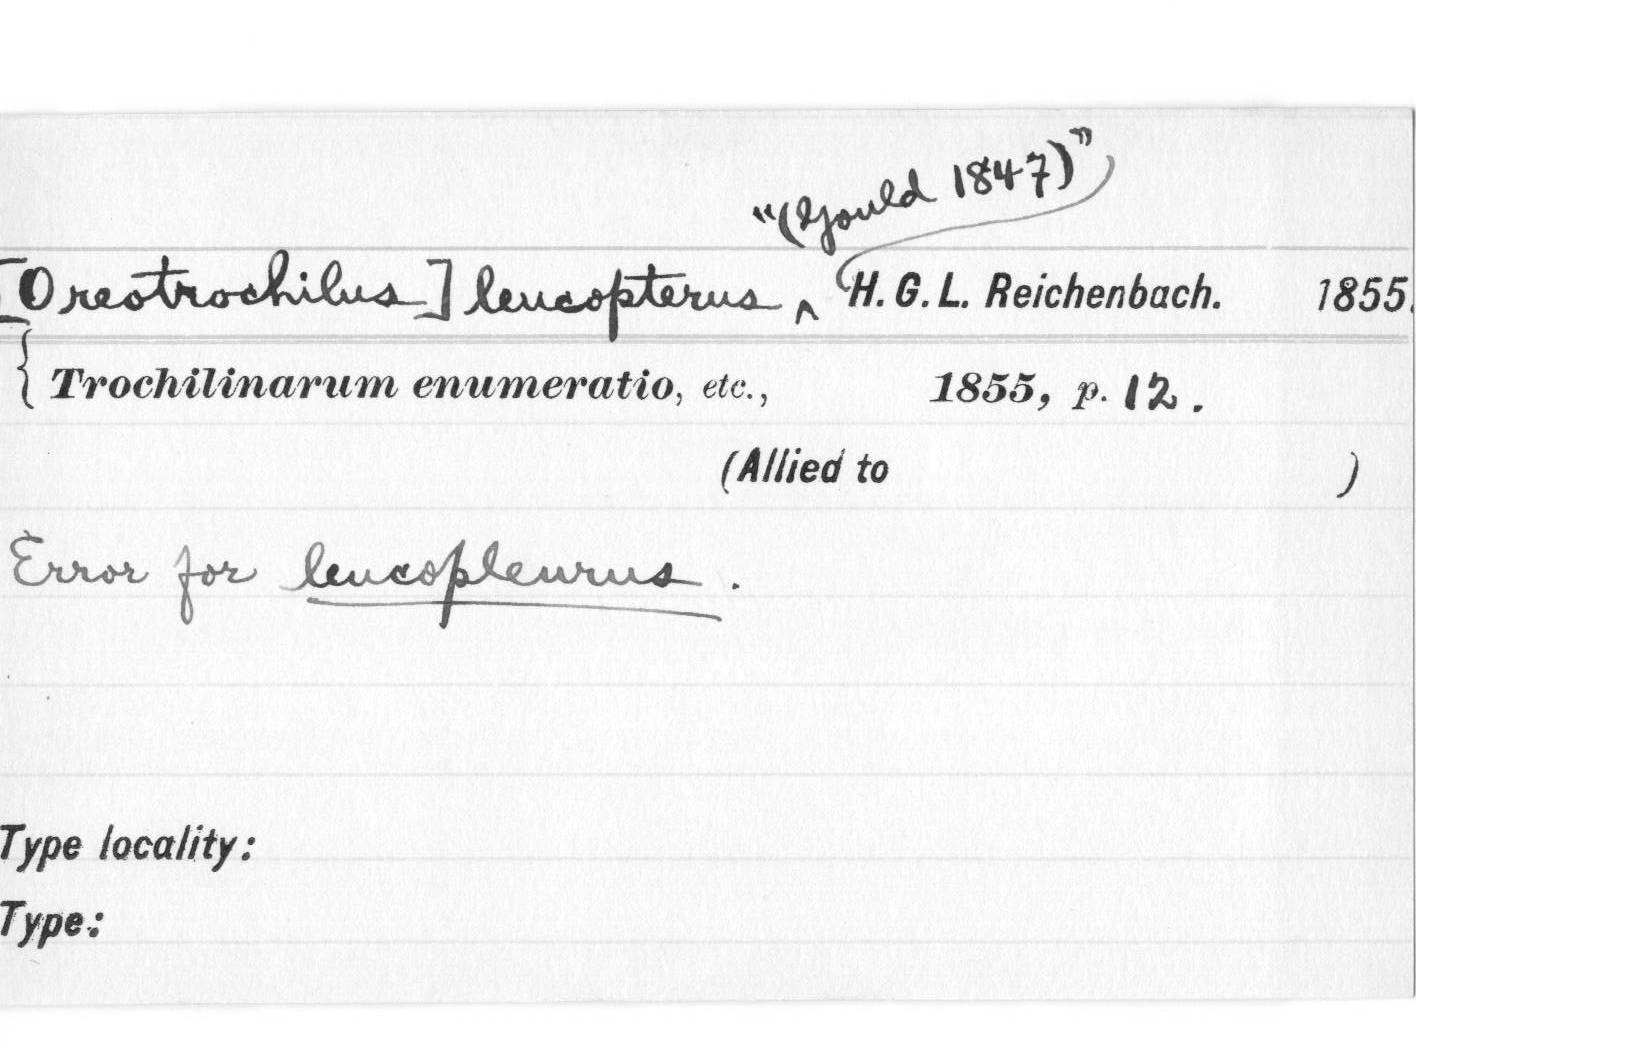 "(Gould 1847)"
[Oreotrochilus] leucopterus ^ H. G. L. Reichenbach. 1855.
{ Trochilinarum enumeratio, etc., 1855, p. 12.
(Allied to )
Error for leucopleurus.
Type locality:
Type: